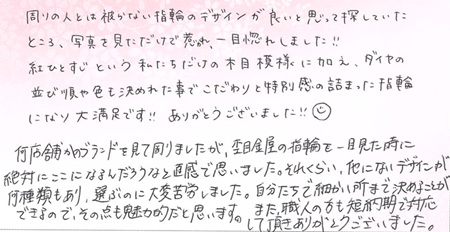 周りの人とは被らない指輪のデザインが良いと思って探していた
ところ、写真を見ただけで惹かれ、一目惚れしました!!
紅ひとすじという私たちだけの木目模様に加え、ダイヤの
並び順や色も決めれた事でこだわりと特別感の詰まった指輪
になり大満足です!! ありがとうございました!!
何店舗かのブランドを見て周りましたが、杢目金屋の指輪を一目見た時に
絶対にここになるんだろうなと直感で思いました。それくらい、他にないデザインが
何種類もあり、選ぶのに大変苦労しました。自分たちで細かい所まで決めることが
できるので、その点も魅力的だと思います。また、職人の方も短納期で対応
して頂きありがとうございました。